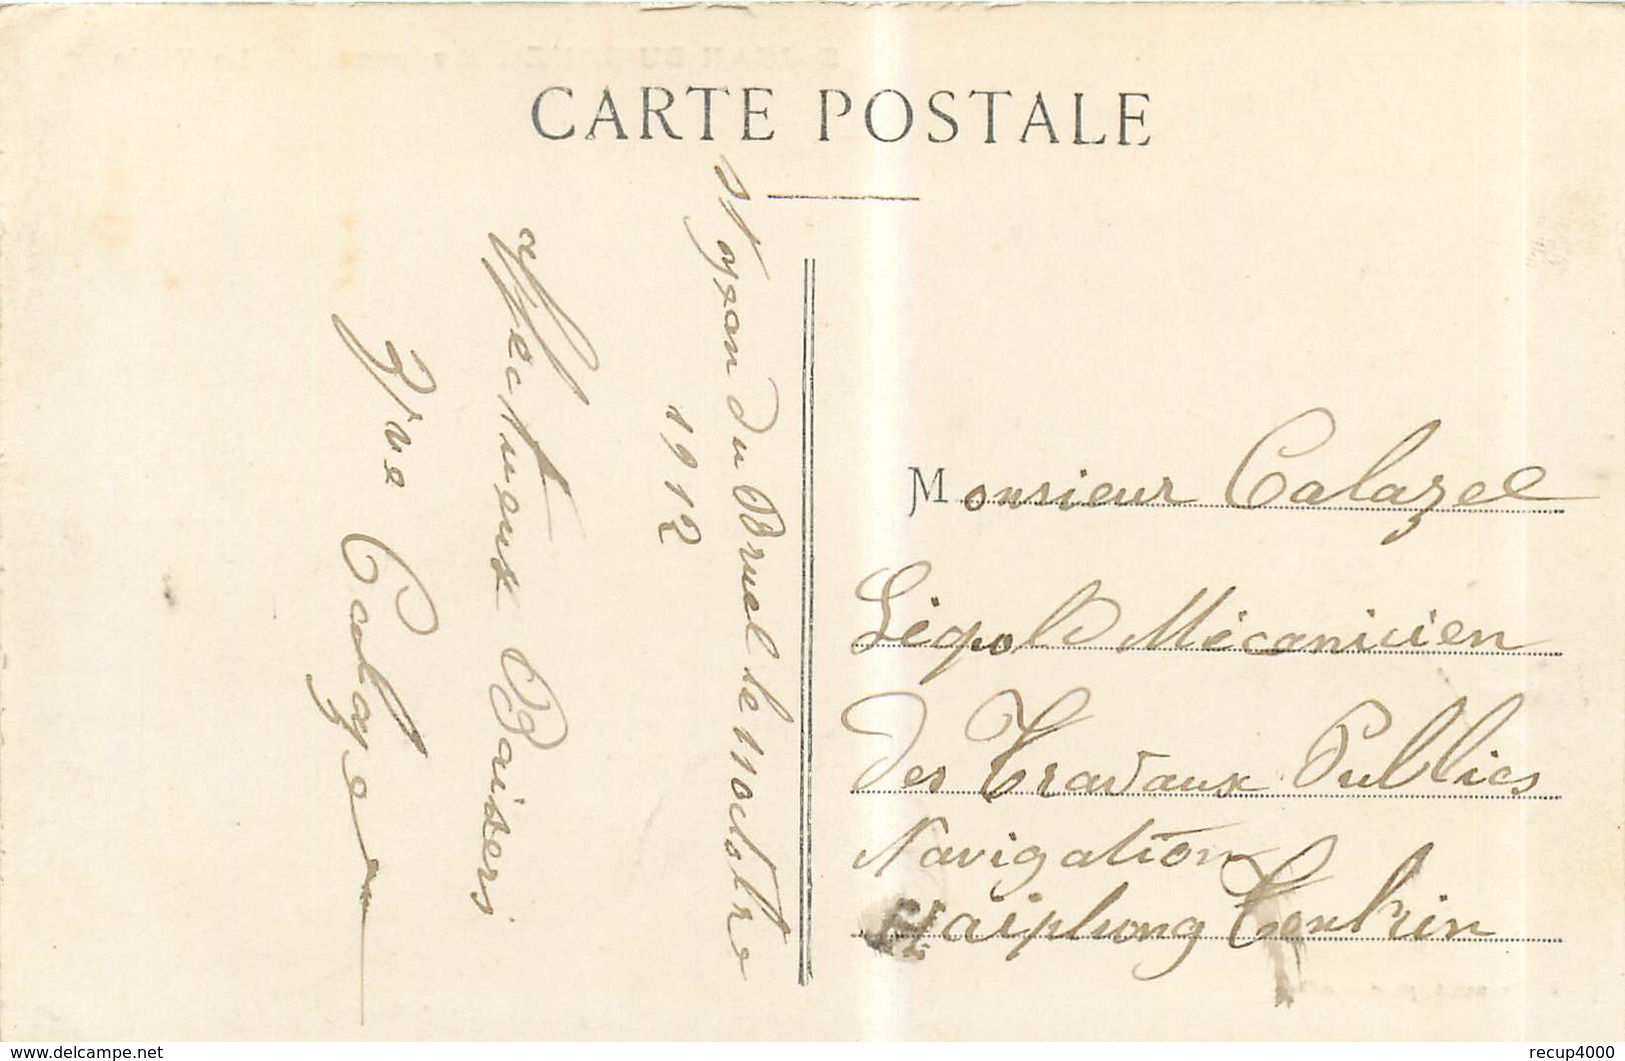 CARTE POSTALE
St Jean du Bruel le 1 octobre
1912
Affectueux Baisers
Calazel
Monsieur Calazel
Léopold Mécanicien
Des Travaux Publics
Navigation
Haiphong Tonkin
www.delcampe.net
recup4000